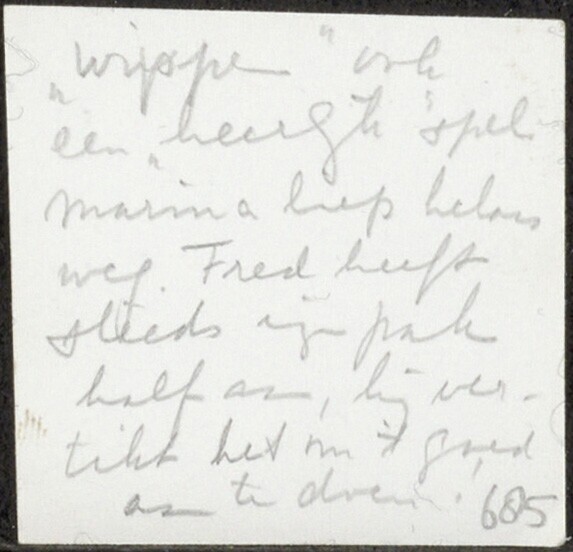 „Wippen" ook
een „heerlijk" spel.
Marina liep helaas
weg. Fred heeft
steeds zijn pak
half aan, hij ver-
tikt het om 't goed
aan te doen.
685